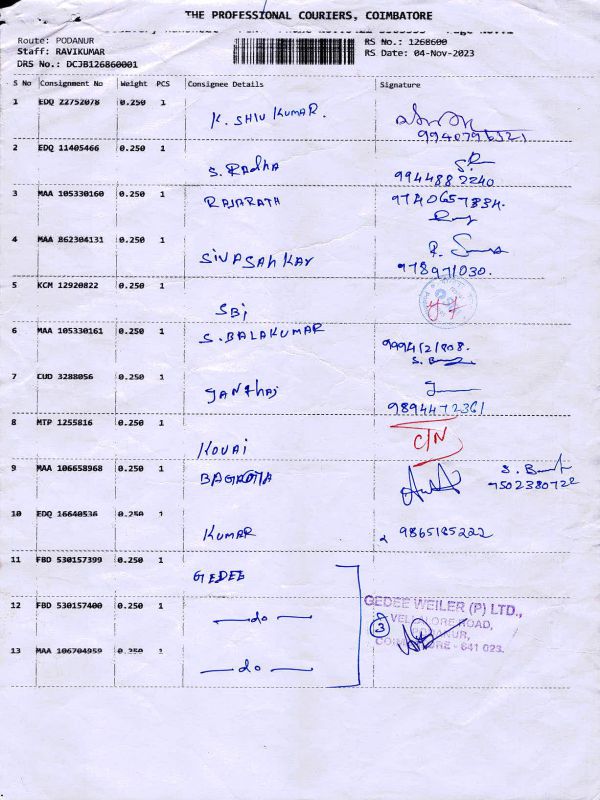 THE PROFESSIONAL COURIERS, COIMBATORE
Route: PODANUR
Staff: RAVIKUMAR
DRS No.: DCJB126860001
RS No.: 1268600
RS Date: 04-Nov-2023
S No Consignment No Weight PCS Consignee Details Signature
1 EDQ 22752078 0.250 1 K. SHIV KUMAR.
9940796321
2 EDQ 11405466 0.250 1 S. Radha
9944882240
3 MAA 105330160 0.250 1 RAJARATH 9740657834.
4 MAA 862304131 0.250 1 SIVASANKAR
978971030.
5 KCM 12920822 0.250 1 SBI
6 MAA 105330161 0.250 1 S. BALAKUMAR
7 CUD 3288056 0.250 1
9894472361
8 MTP 1255816 0.250 1 KOVAI C/N
9 MAA 106658968 0.250 1
9502380722
10 EDQ 16640536 0.250 1 KUMAR 9865185222
11 FBD 530157399 0.250 1 GEDEE
12 FBD 530157400 0.250 1 —do—
GEDEE WEILER (P) LTD.,
3
13 MAA 106704959 0.250 1 —do—
COIMBATORE - 641 023.